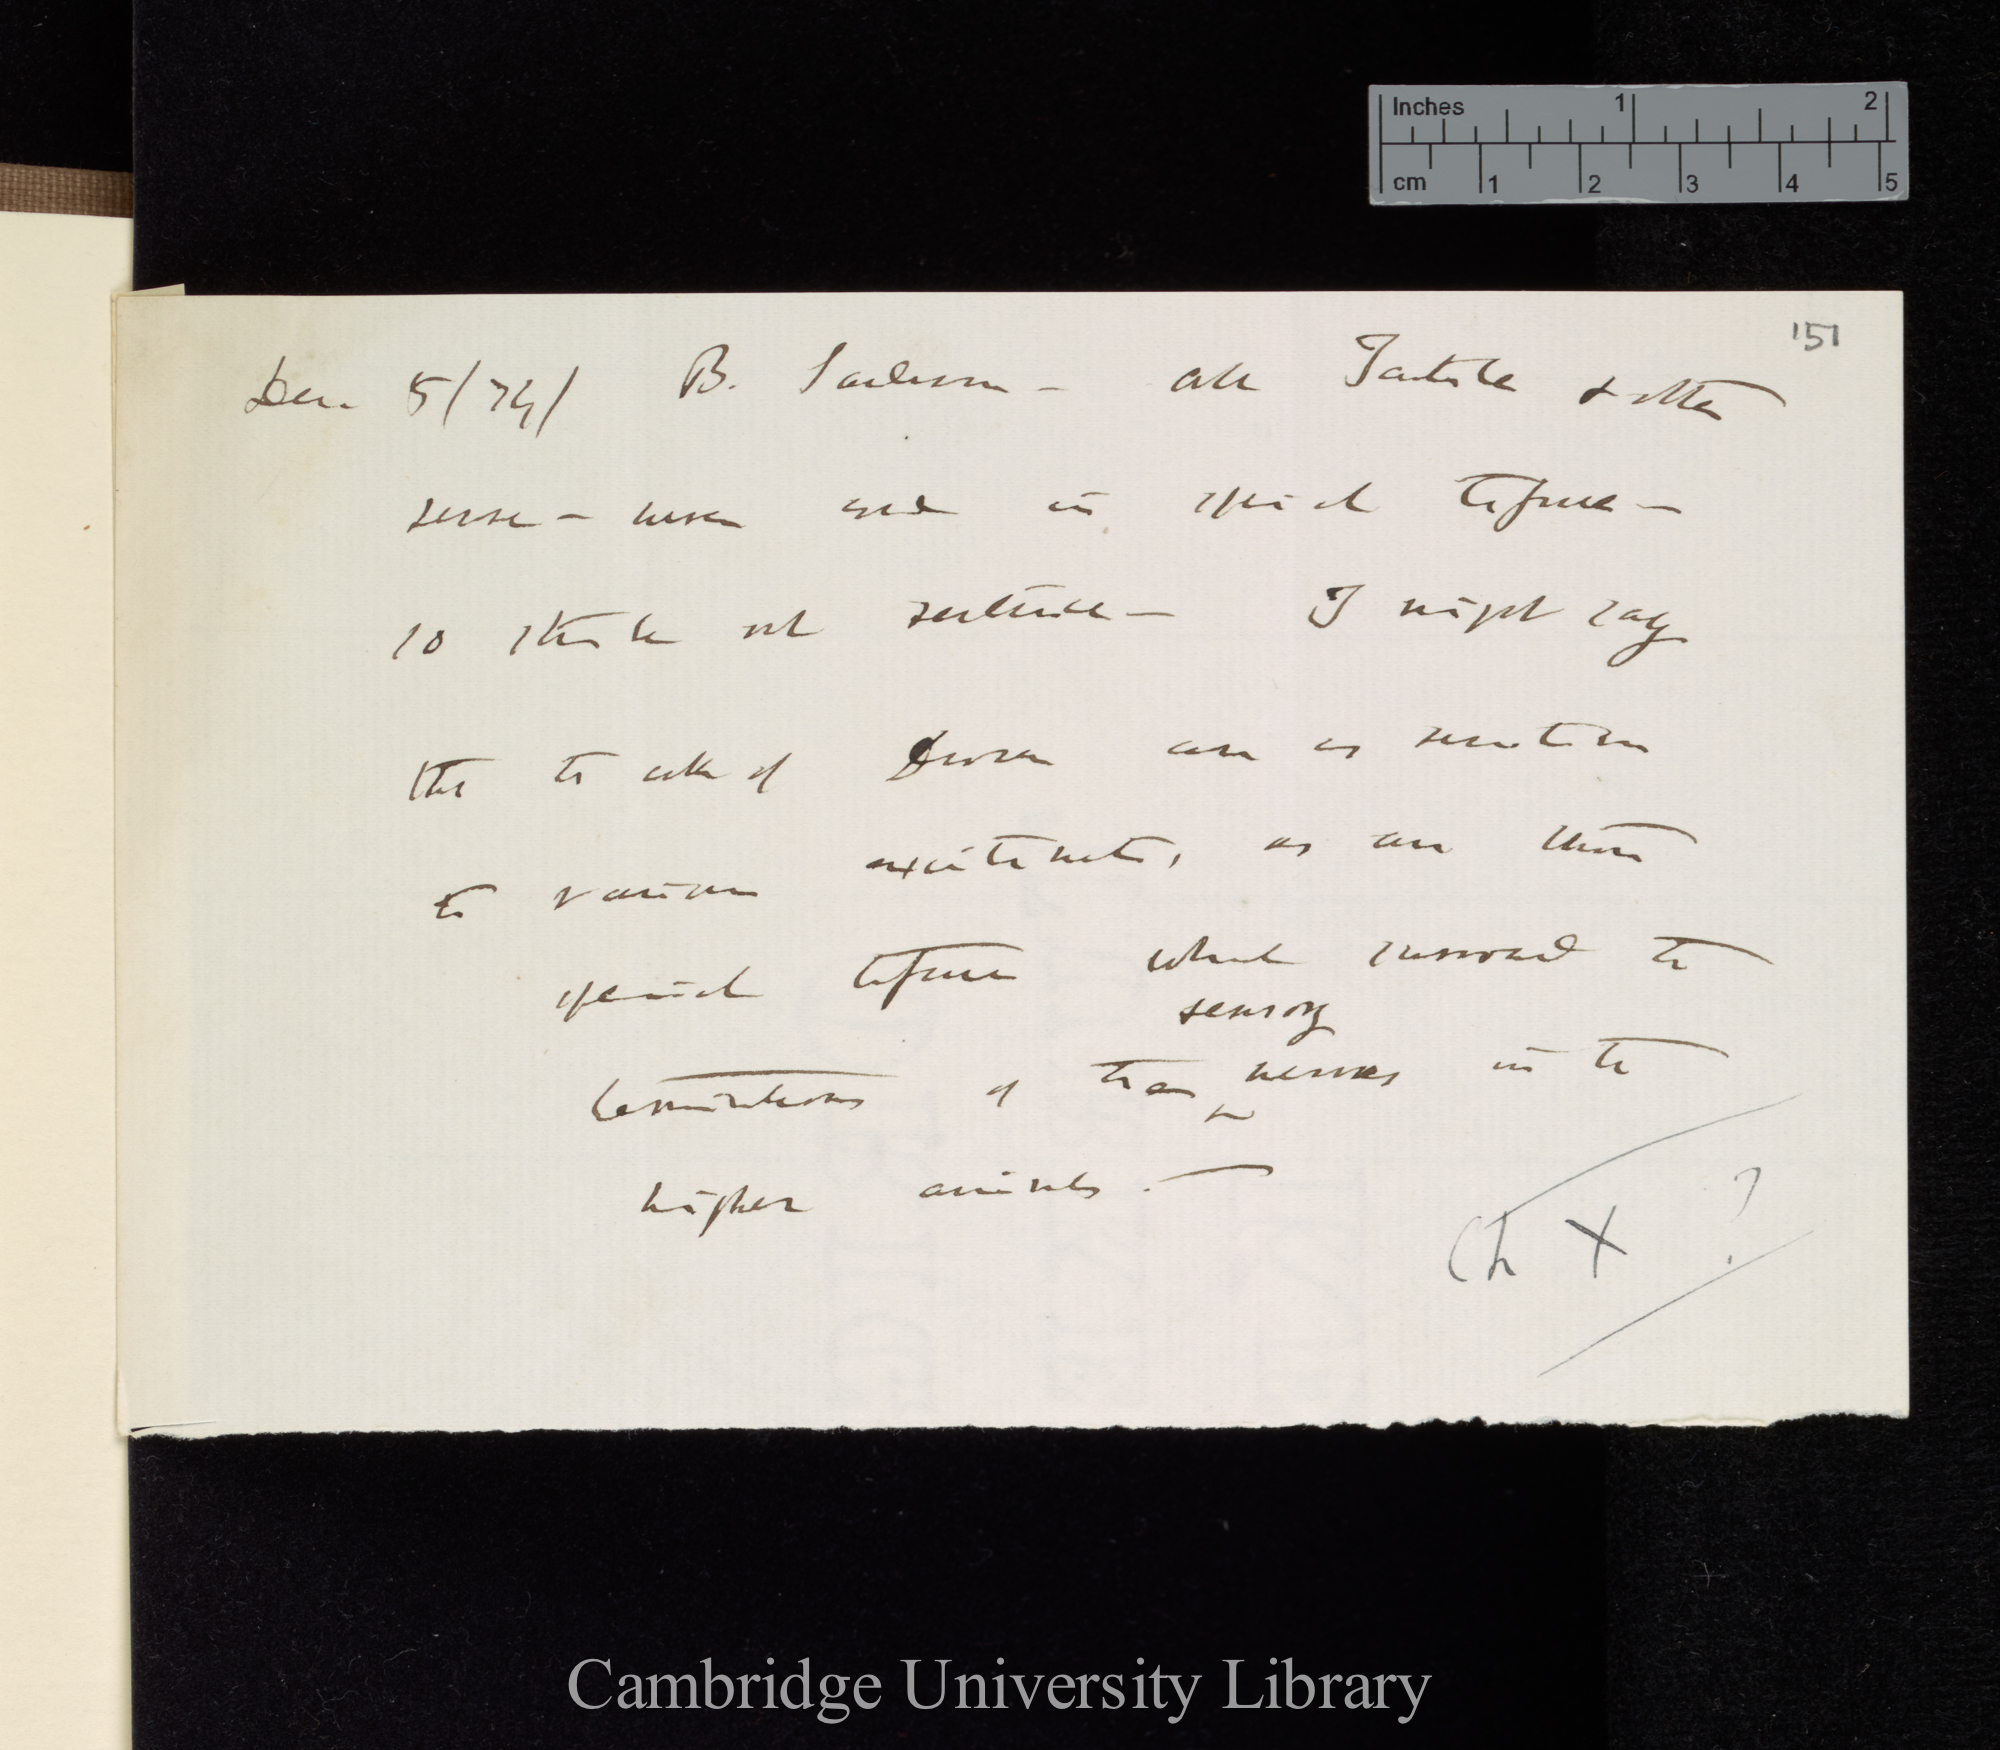 Inches 1 2
cm 1 2 3 4 5
151
Dec. 5/74/ B. Sanderson — all Tactile & other
sense — nerves end in special tissue —
so think not sensitive — I might say
that the cells of Drosera are as sensitive
to various excitements, as are those
special tissues which surround the
sensory
terminations of the nerves in the
higher animals. —
Ch X ?
Cambridge University Library